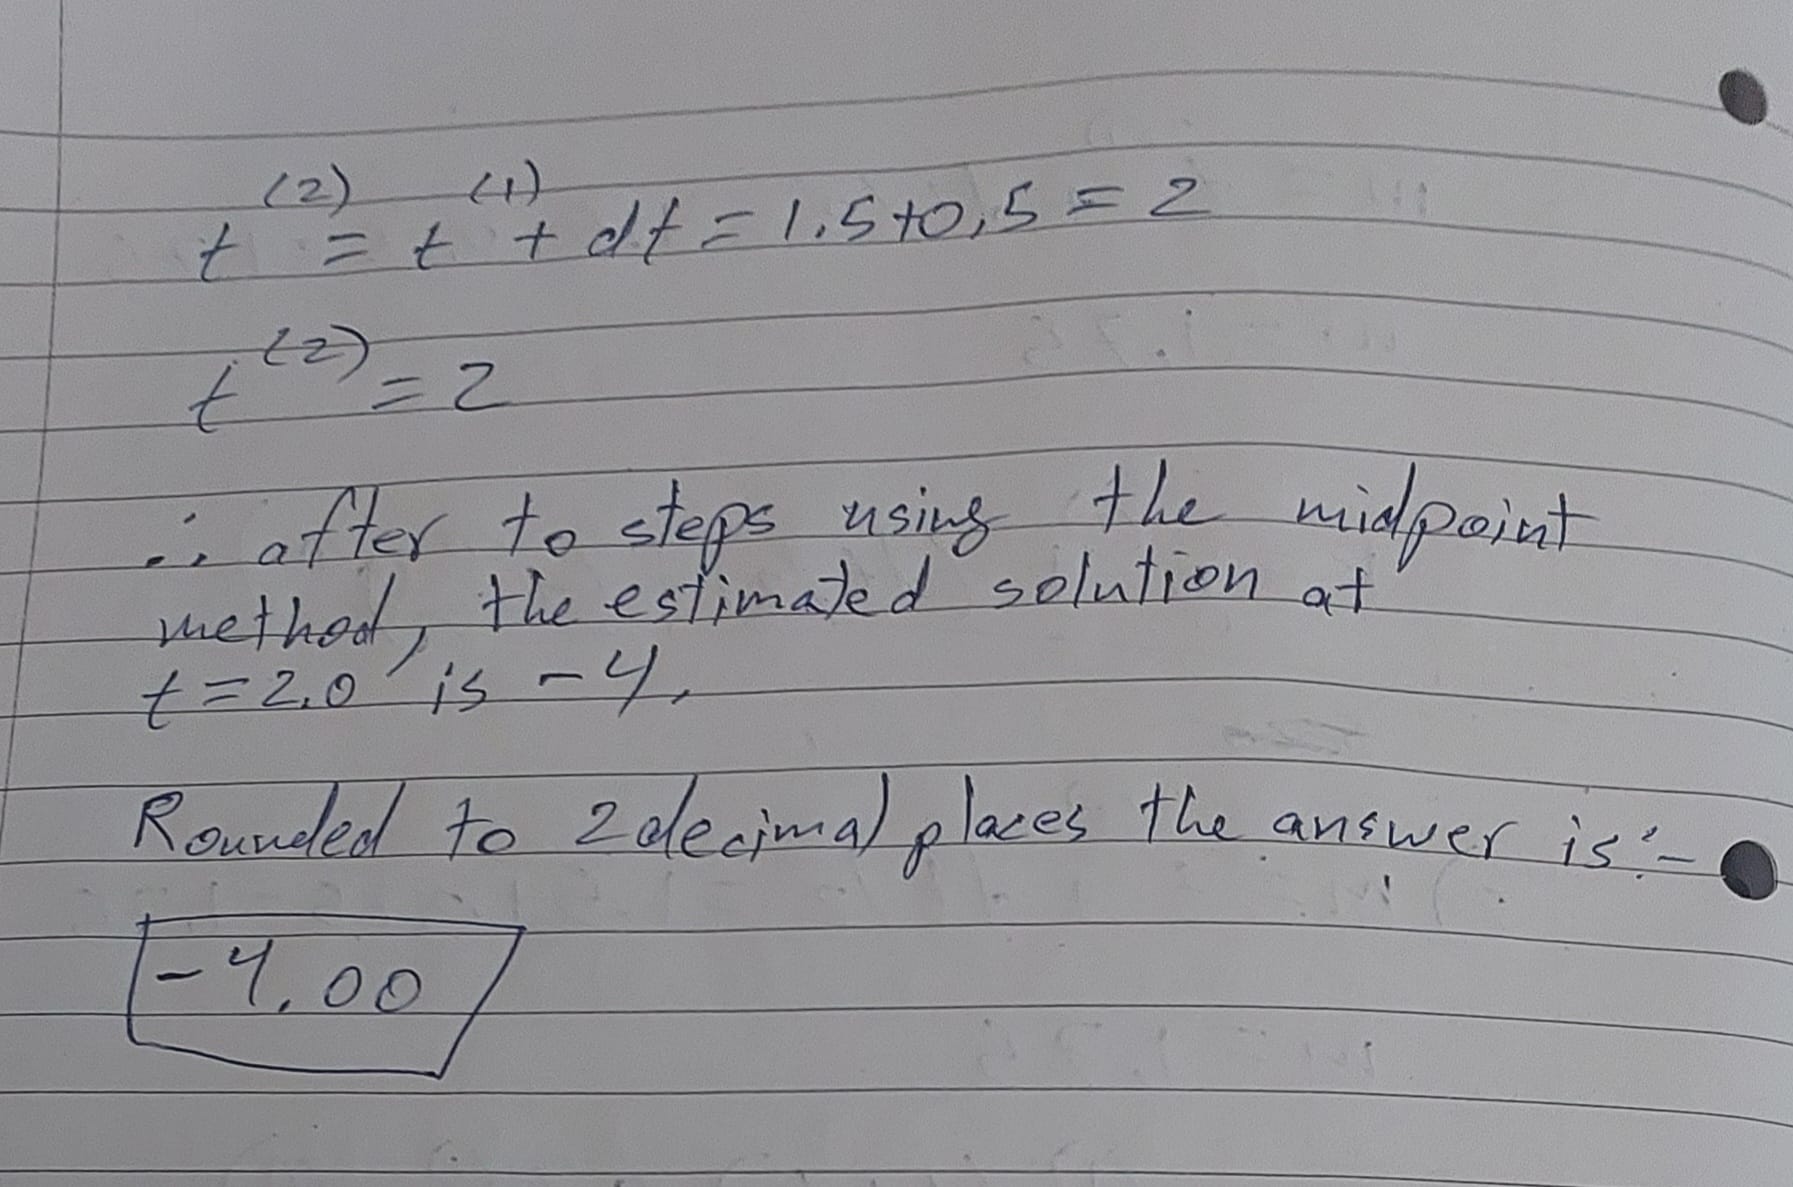 t^(2) = t^(1) + dt = 1.5+0.5 = 2
t^(2) = 2
∴ after to steps using the midpoint
method, the estimated solution at
t=2.0 is -4.
Rounded to 2 decimal places the answer is:-
-4.00